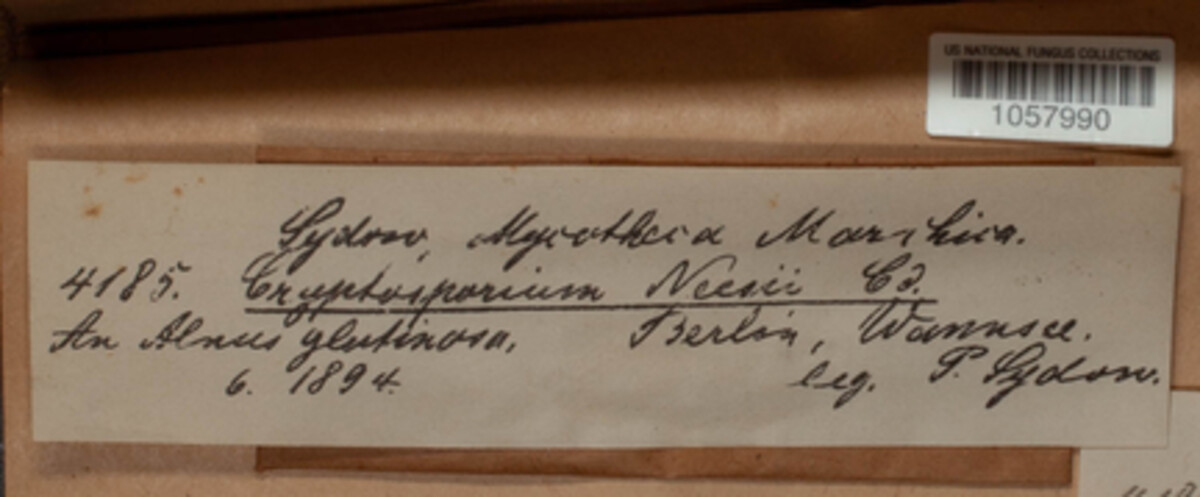 US NATIONAL FUNGUS COLLECTIONS
1057990
Sydow, Mycotheca Marchica.
4185. Cryptosporium Neesii Cd.
An Alnus glutinosa. Berlin, Wannsee.
6. 1894. leg. P. Sydow.